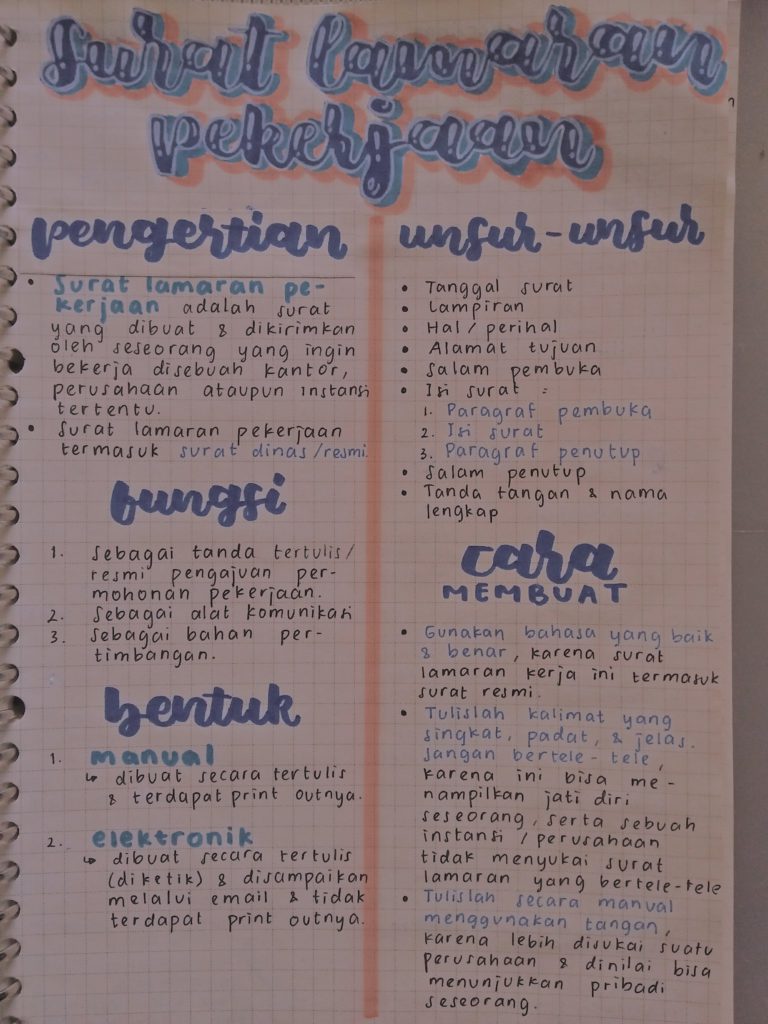 surat lamaran
pekerjaan
pengertian
• Surat lamaran pe-
kerjaan adalah surat
yang dibuat & dikirimkan
oleh seseorang yang ingin
bekerja disebuah kantor,
perusahaan ataupun instansi
tertentu.
• Surat lamaran pekerjaan
termasuk surat dinas/resmi.
fungsi
1. Sebagai tanda tertulis/
resmi pengajuan per-
mohonan pekerjaan.
2. Sebagai alat komunikasi
3. Sebagai bahan per-
timbangan.
bentuk
1. manual
↳ dibuat secara tertulis
& terdapat print outnya.
2. elektronik
↳ dibuat secara tertulis
(diketik) & disampaikan
melalui email & tidak
terdapat print outnya.
unsur-unsur
• Tanggal surat
• Lampiran
• Hal/perihal
• Alamat tujuan
• Salam pembuka
• Isi surat :
1. Paragraf pembuka
2. Isi surat
3. Paragraf penutup
• Salam penutup
• Tanda tangan & nama
lengkap
cara
MEMBUAT
• Gunakan bahasa yang baik
& benar, karena surat
lamaran kerja ini termasuk
surat resmi.
• Tulislah kalimat yang
singkat, padat, & jelas.
Jangan bertele-tele,
karena ini bisa me-
nampilkan jati diri
seseorang, serta sebuah
instansi / perusahaan
tidak menyukai surat
lamaran yang bertele-tele
• Tulislah secara manual
menggunakan tangan,
karena lebih disukai suatu
perusahaan & dinilai bisa
menunjukkan pribadi
seseorang.